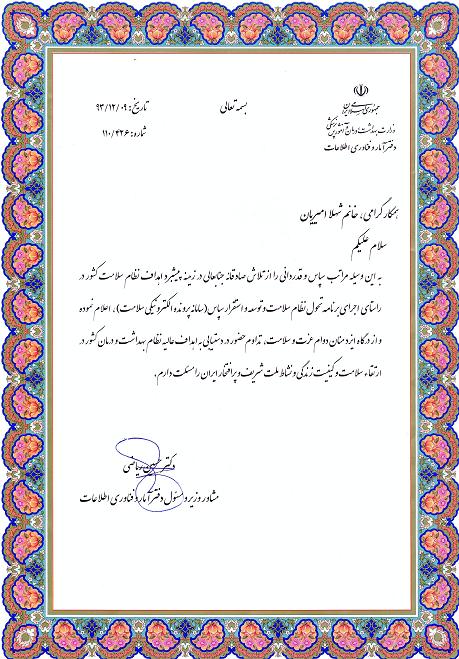 بسمه تعالی
جمهوری اسلامی ایران
وزارت بهداشت، درمان و آموزش پزشکی
دفتر آمار و فناوری اطلاعات
تاریخ: ۹۳/۱۲/۰۹
شماره: ۱۱۰/۴۲۶
همکار گرامی، خانم شهلا امیریان
سلام علیکم
به این وسیله مراتب سپاس و قدردانی را از تلاش صادقانه جنابعالی در زمینه پیشبرد اهداف نظام سلامت کشور در
راستای اجرای برنامه تحول نظام سلامت و توسعه و استقرار سپاس (سامانه پرونده الکترونیکی سلامت)، اعلام نموده
و از درگاه ایزد منان دوام عزت و سلامت، تداوم حضور در دستیابی به اهداف عالیه نظام بهداشت و درمان کشور در
ارتقاء سلامت و کیفیت زندگی و نشاط ملت شریف و پرافتخار ایران را مسئلت دارم.
دکتر حسین ریاضی
مشاور وزیر و مسئول دفتر آمار و فناوری اطلاعات